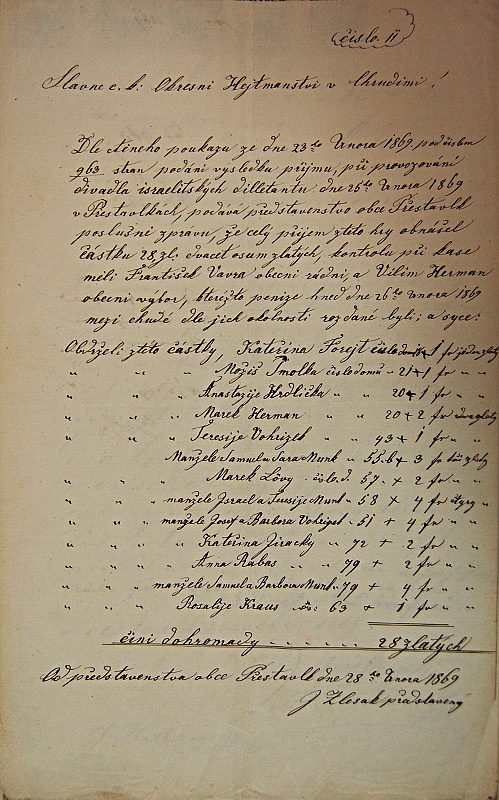 číslo. 11
Slavne c. k: Okresni Hejtmanstvi v Chrudimi!
Dle cténeho poukazu ze dne 23ho Února 1869 pod čislem
963 stran podáni vysledku přijmu, při provozováni
divadla israelitských dilletantu dne 25ho Února 1869
v Přestavlkách, podává představenstvo obce Přestavlk
poslušni zprávu, že celý přijem zteto hry obnášel
částku 28 zl. dvacet osum zlatých, kontrolu při kase
měli František Vavra obecni rádni, a Vilim Herman
obecni výbor, kterežto penize hned dne 26ho Února 1869
mezi chudé dle jich okolnosti rozdané byli; a syce:
Obdrželi zteto částky, Kateřina Forejt čislo domu 1 fr jeden zlatý
" " " Mojžiš Tmolka čislo domu - 21 + 1 fr " "
" " " Anastazije Hrdlička " " 20 + 1 fr " "
" " " Marek Herman " " 20 + 2 fr dva zlatý
" " " Teresije Vohrizek " " 43 + 1 fr " "
Manžele Samuel u Sara Munk " 55.b + 3 fr tři zlatý
" " " Marek Lövy - čislo. d. 57. + 2 fr " "
" " " manžele Israel a Teresije Munk - 58 + 4 fr čtyry "
" " " manžele Josef a Barbora Vohrizek - 51 + 4 fr " "
" " " Kateřina Jiracky " 72 + 2 fr " "
" " " Anna Rabas " " 79 + 2 fr " "
" " " manžele Samuel a Barbora Munk - 79 + 4 fr " "
" " " Rosalije Kraus " čis: 63 + 1 fr " "
čini dohromady . . . . . . 28 zlatých
Od představenstva obce Přestavlk dne 28ho Února 1869
J Zlesak představený